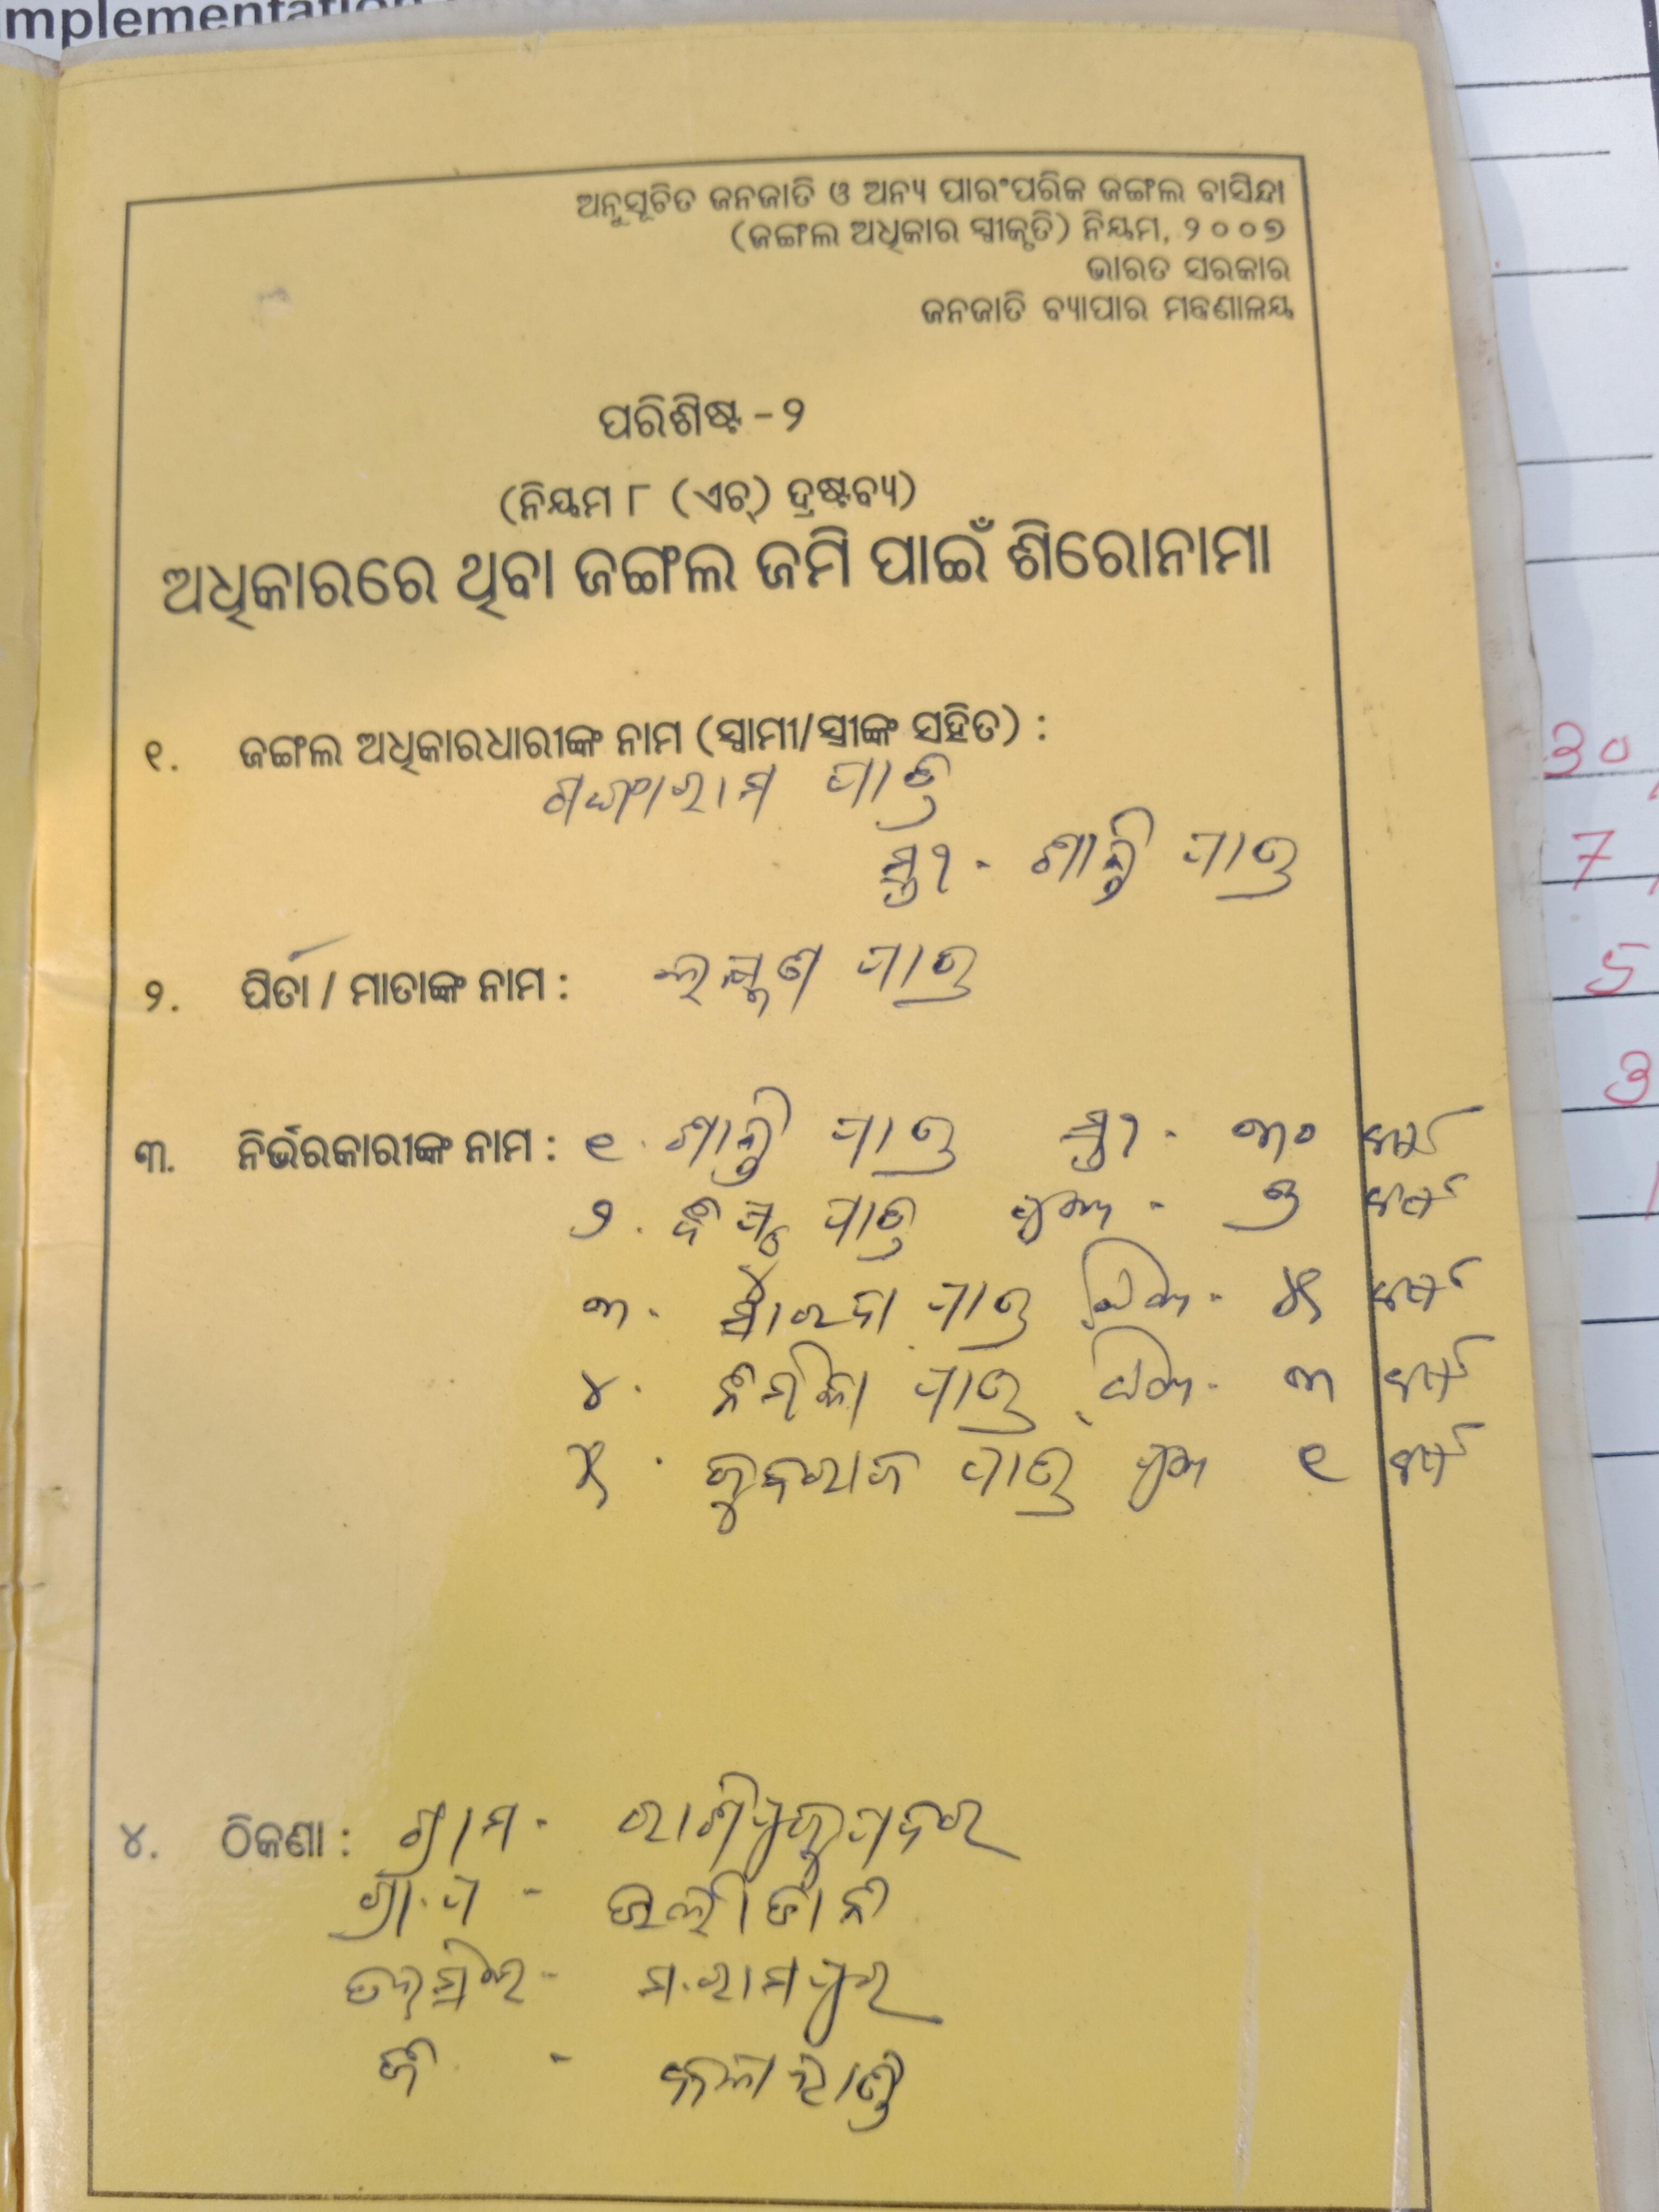 mplementation
ଅନୁସୂଚିତ ଜନଜାତି ଓ ଅନ୍ୟ ପାରଂପରିକ ଜଙ୍ଗଲ ବାସିନ୍ଦା
(ଜଙ୍ଗଲ ଅଧିକାର ସ୍ୱୀକୃତି) ନିୟମ, ୨୦୦୭
ଭାରତ ସରକାର
ଜନଜାତି ବ୍ୟାପାର ମନ୍ତ୍ରଣାଳୟ
ପରିଶିଷ୍ଟ - ୨
(ନିୟମ ୮ (ଏଚ୍) ଦ୍ରଷ୍ଟବ୍ୟ)
ଅଧିକାରରେ ଥିବା ଜଙ୍ଗଲ ଜମି ପାଇଁ ଶିରୋନାମା
୧. ଜଙ୍ଗଲ ଅଧିକାରଧାରୀଙ୍କ ନାମ (ସ୍ୱାମୀ/ସ୍ତ୍ରୀଙ୍କ ସହିତ) :
ଗଙ୍ଗାରାମ ପାତ୍ର
ସ୍ତ୍ରୀ - ଶାନ୍ତି ପାତ୍ର
୨. ପିତା / ମାତାଙ୍କ ନାମ : ଲକ୍ଷ୍ମଣ ପାତ୍ର
୩. ନିର୍ଭରକାରୀଙ୍କ ନାମ : ୧. ଶାନ୍ତି ପାତ୍ର ସ୍ତ୍ରୀ - ୩୦ ବର୍ଷ
୨. ପାତ୍ର ପୁଅ - ୭ ବର୍ଷ
୩. ପାତ୍ର ଝିଅ - ୫ ବର୍ଷ
୪. ପାତ୍ର ଝିଅ - ୩ ବର୍ଷ
୫. ପାତ୍ର ପୁଅ ୧ ବର୍ଷ
୪. ଠିକଣା : ଗ୍ରାମ -
ଗ୍ରା.ପ -
ତହସିଲ - ମ.ରାମପୁର
ଜି - କଳାହାଣ୍ଡି
30
7
5
3